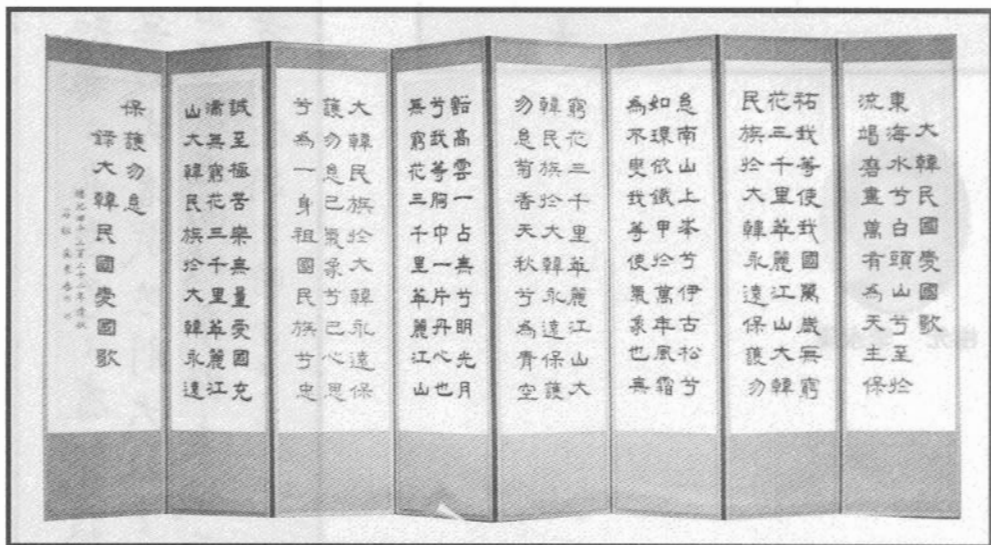 大韓民國愛國歌
東海水兮白頭山兮至於
流竭磨盡萬有為天主保
祐我等使我國萬歲無窮
花三千里華麗江山大韓
民族於大韓永遠保護勿
怠南山上峯兮伊古松兮
如環依鐵甲於萬年風霜
為不更我等使氣象也無
窮花三千里華麗江山大
韓民族於大韓永遠保護
勿怠菊香天秋兮為青空
豁高雲一占無兮明光月
兮我等胸中一片丹心也
無窮花三千里華麗江山
大韓民族於大韓永遠保
護勿怠己氣象兮己心思
兮為一身祖國民族兮忠
誠至極苦樂無量愛國充
滿無窮花三千里華麗江
山大韓民族於大韓永遠
保護勿怠
錄大韓民國愛國歌